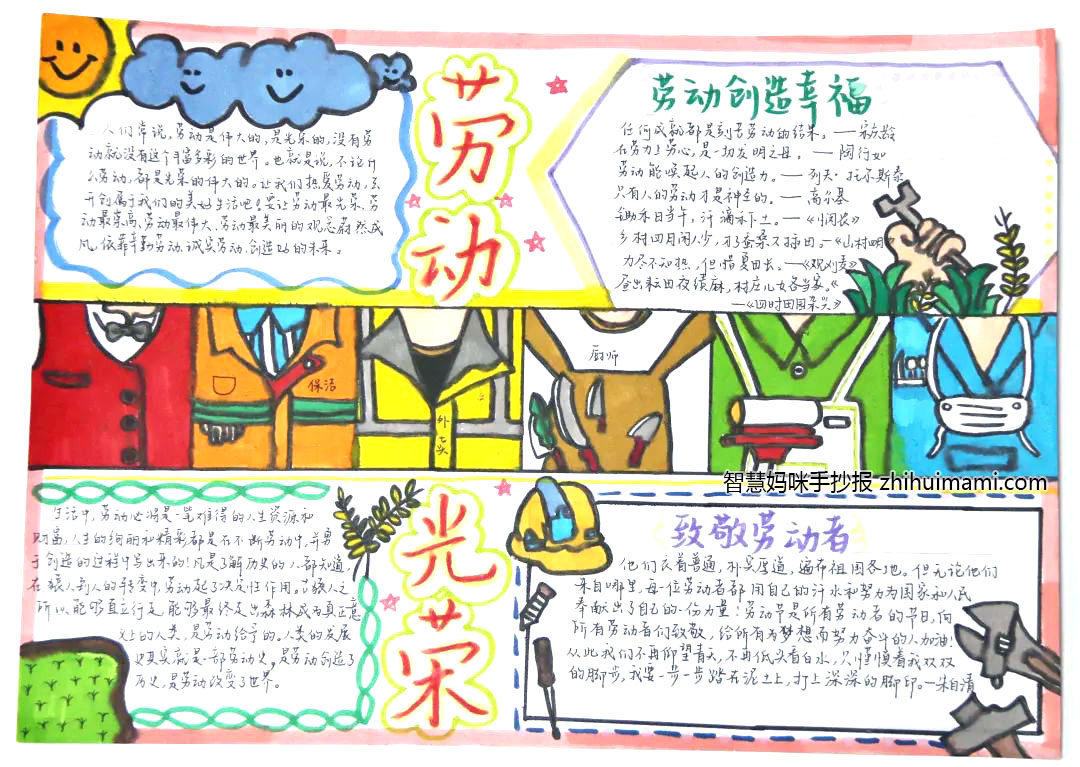 劳动
人们常说,劳动是伟大的,是光荣的,没有劳
动就没有这个丰富多彩的世界。也就是说,不论什
么劳动,都是光荣的伟大的。让我们热爱劳动,去
开创属于我们的美好生活吧!要让劳动最光荣,劳
动最崇高,劳动最伟大,劳动最美丽的观念蔚然成
风,依靠辛勤劳动、诚实劳动,创造的未来。
劳动创造幸福
任何成就都是刻苦劳动的结果。—宋庆龄
在劳力上劳心,是一切发明之母。—陶行知
劳动能唤起人的创造力。—列夫·托尔斯泰
只有人的劳动才是神圣的。—高尔基
锄禾日当午,汗滴禾下土。—《悯农》
乡村四月闲人少,才了蚕桑又插田。—《山村四月》
力尽不知热,但惜夏日长。—《观刈麦》
昼出耘田夜绩麻,村庄儿女各当家。
—《四时田园杂兴》
保洁
外卖
厨师
智慧妈咪手抄报 zhihuimami.com
光荣
生活中,劳动必将是一笔难得的人生资源和
财富,人生的绚丽和精彩都是在不断劳动中,并勇
于创造的过程中写出来的!凡是了解历史的人都知道,
在猿人到人的转变中,劳动起了决定性作用。古猿人之
所以能够直立行走,能够最终走出森林成为真正意
义上的人类,是劳动给予的。人类的发展
史其实就是一部劳动史。是劳动创造了
历史,是劳动改变了世界。
致敬劳动者
他们衣着普通,朴实厚道,遍布祖国各地。但无论他们
来自哪里,每一位劳动者都用自己的汗水和努力为国家和人民
奉献出了自己的一份力量!劳动节是所有劳动者的节日,向
所有劳动者们致敬,给所有为梦想而努力奋斗的人加油!
从此我们不再仰望青天,不再低头看白水,只谨慎着我双双
的脚步,我要一步一步踏在泥土上,打上深深的脚印。—朱自清